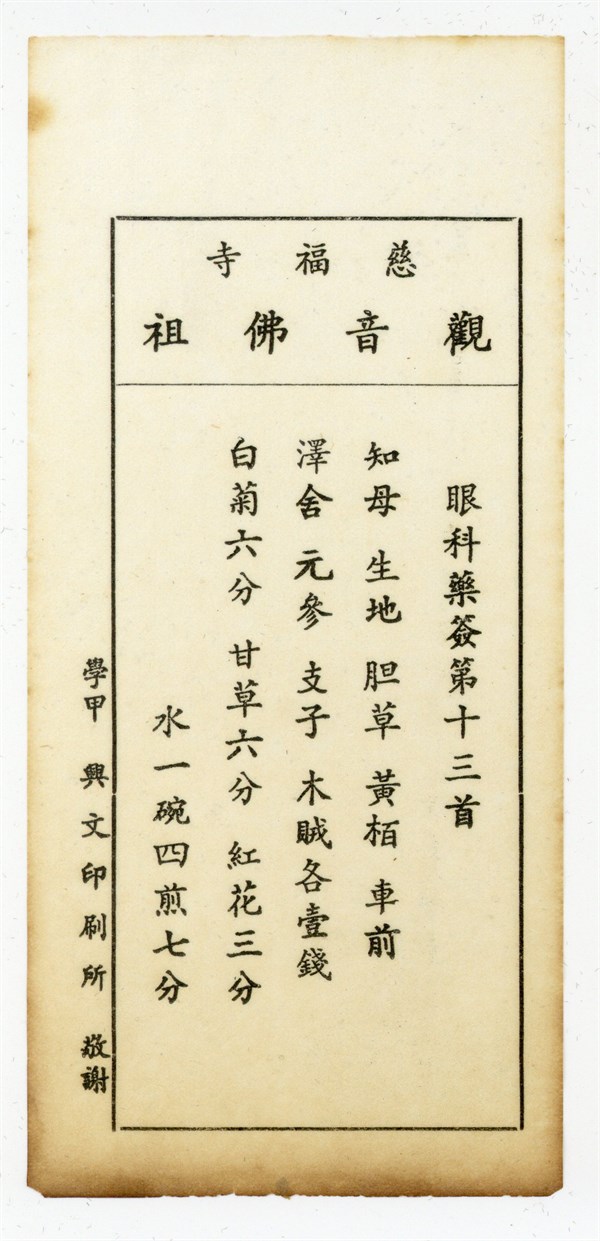 慈福寺
觀音佛祖
眼科藥簽第十三首
知母 生地 胆草 黃栢 車前
澤舍 元參 支子 木賊各壹錢
白菊六分 甘草六分 紅花三分
水一碗四煎七分
學甲 興文印刷所 敬謝